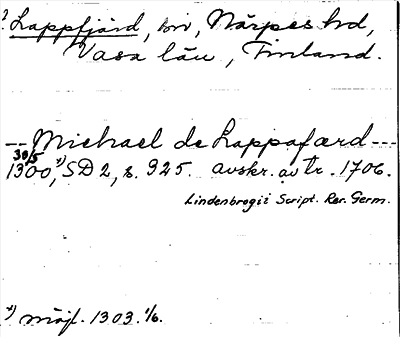 ? Lappfjärd, sn, Närpes hd,
Vasa län, Finland.
-- Michael de Lappafærd ---
30/5
1300,*) SD 2, s. 925. avskr. av tr. 1706.
Lindenbrogii Script. Rer. Germ.
*) möjl. 1303. 1/6.